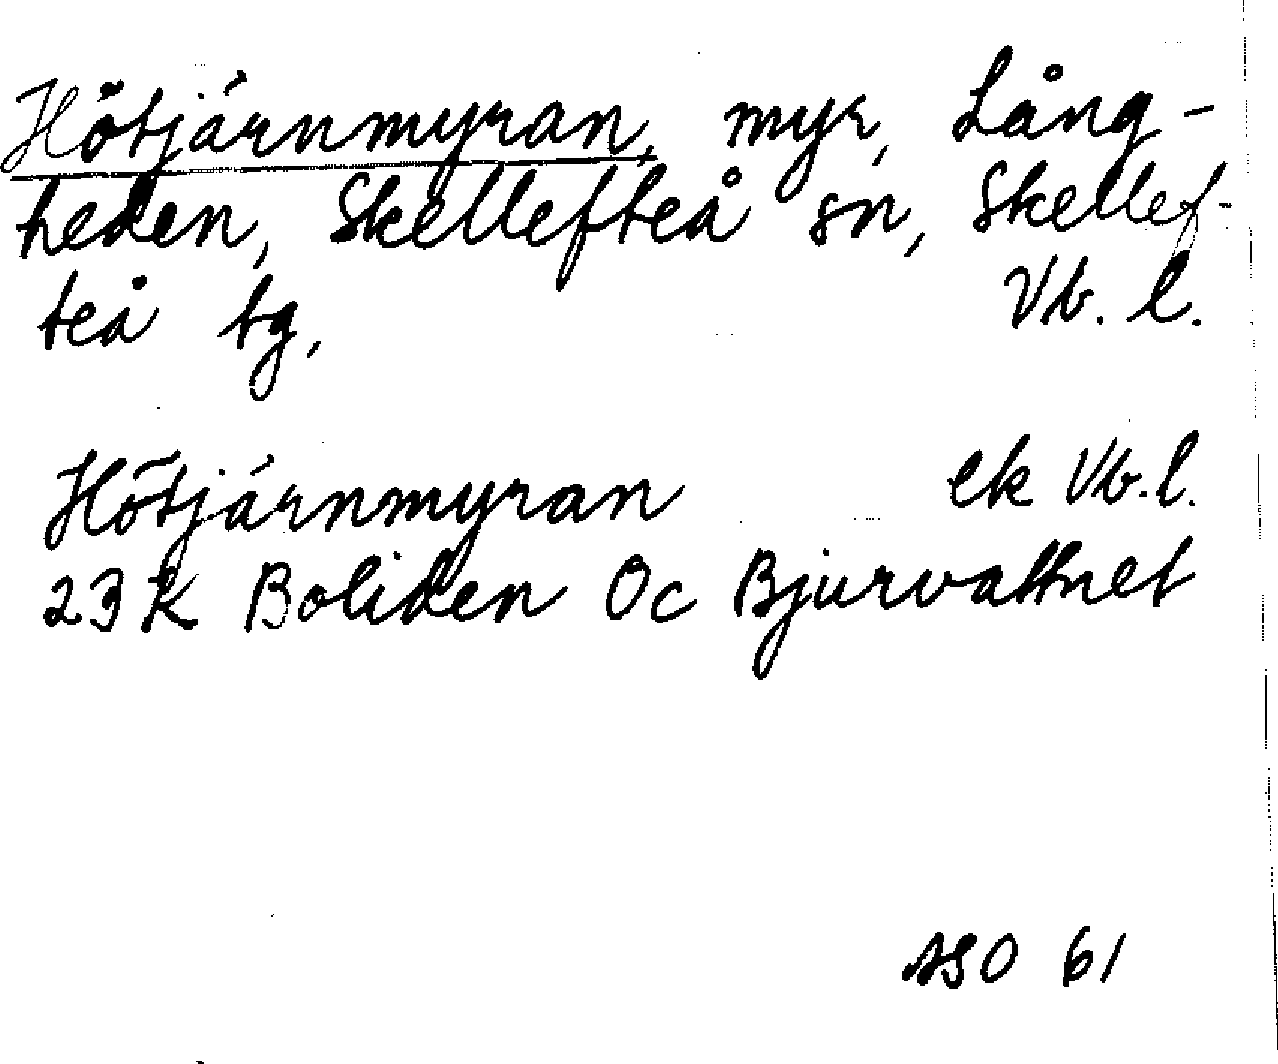 Hötjärnmyran, myr, Lång-
heden, Skellefteå sn, Skellef-
teå tg, Vb. l.
Hötjärnmyran ek Vb. l.
23K Boliden Oc Bjurvattnet
ASO 61